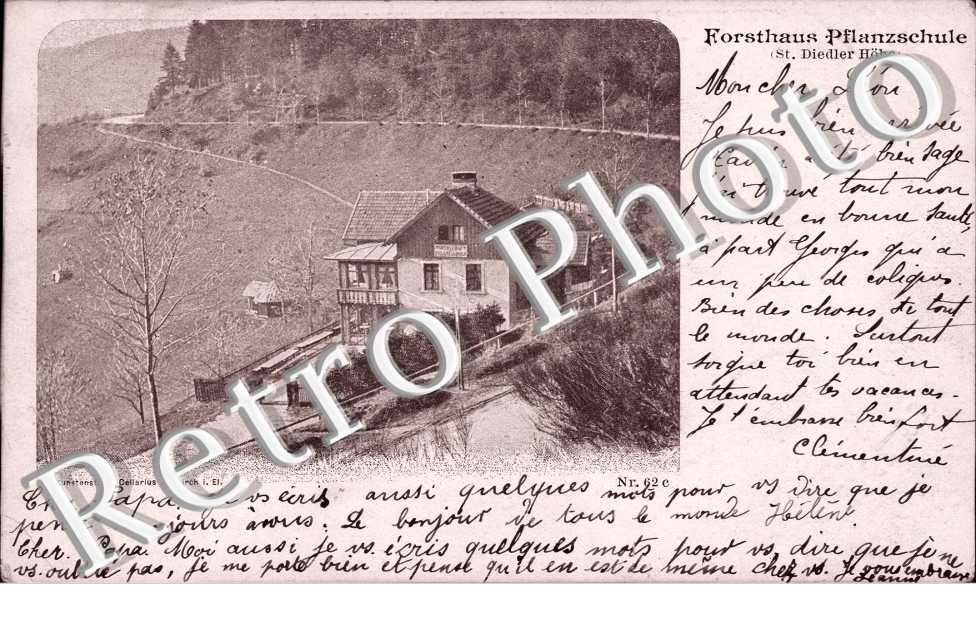 Forsthaus Pflanzschule
(St. Diedler Höhe)
Mon cher Léon
Je suis bien arrivée
Xavier a été bien sage
J'ai trouvé tout mon
monde en bonne santé,
à part Georges qui a
un peu de coliques.
Bien des choses de tout
le monde. Surtout
soigne toi bien en
attendant tes vacances.
Je t'embrasse bien fort
Clémentine
Cellarius i. El.
Nr. 62 c
Cher Papa. vs écris aussi quelques mots pour vs dire que je
pense toujours à vous. Le bonjour de tous le monde Hélène
Cher. Papa. Moi aussi je vs. écris quelques mots pour vs. dire que je ne
vs. oublie pas, je me porte bien et pense qu'il en est de même chez vs. Je vous embrasse
Jeanne
Retro Photo Retro Photo